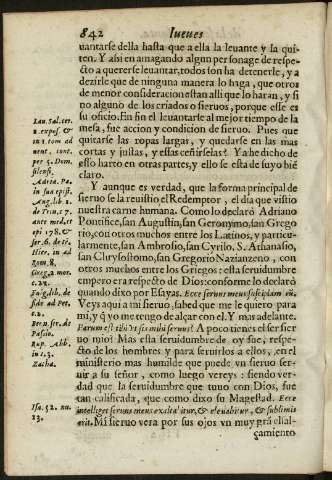 842 Iueues
uantarse della hasta que a ella la leuante y la qui-
ten. Y asi en amagando algun personage de respe-
cto a quererse leuantar, todos son ha detenerle, y a
dezirle que de ninguna manera lo haga, que otros
de menor consideracion estan alli que lo haran, y si
no alguno de los criados o sieruos, porque esse es
su oficio. En fin el leuantarse al mejor tiempo de la
mesa, fue accion y condicion de sieruo. Pues que
quitarse las ropas largas, y quedarse en las mas
cortas y justas, y essas ceñirselas? Ya he dicho de
esso harto en otras partes, y ello se esta de suyo bië
claro.
Y aunque es verdad, que la forma principal de
sieruo se la reuistio el Redemptor, el dia que vistio
nuestra carne humana. Como lo declarò Adriano
Pontifice, san Augustin, san Geronymo, san Grego
rio, con otros muchos entre los Latinos, y particu-
larmente, san Ambrosio, san Cyrilo, S. Athanasio,
san Chrysostomo, san Gregorio Nazianzeno, con
otros muchos entre los Griegos: esta seruidumbre
empero era respecto de Dios: conforme lo declarò
quando dixo por Esayas. Ecce seruus meus suscipiam eü.
Veys aqui a mi sieruo, sabed que me le quiero para
mi, y q̃ yo me tengo de alçar con el. Y mas adelante.
Parum est tibi vt sis mihi seruus? A poco tienes el ser sier
uo mio? Mas esta seruidumbre de oy fue, respe-
cto de los hombres y para seruirlos a ellos, en el
ministerio mas humilde que puede vn sieruo ser-
uir a su señor, como luego vereys: siendo ver-
dad que la seruidumbre que tuuo con Dios, fue
tan calificada, que como dixo su Magestad. Ecce
intelliget seruus meus exaltabitur, & eleuabitur, & sublimis
erit. Mi sieruo vera por sus ojos vn muy grã ensal-
çamiento
Leu. Sal. ter.
2. expos. &
in 1. tom ad
uent. cont.
per 5. Dom.
silensi.
Adria. Pa.
in sua epist.
Ang. lib. 1.
de Trin. 7.
ante med. et
epi 178. &
ser. 6. de tē.
Hier. in ad
gom. 8.
Greg. 2. mor.
c. 22.
Fulg. lib. de
fide ad Pet.
c. 2.
Ber. n. ser. de
Passio.
Rup. Abb.
in c. 3.
Zacha.
Isa. 52. nu.
13.